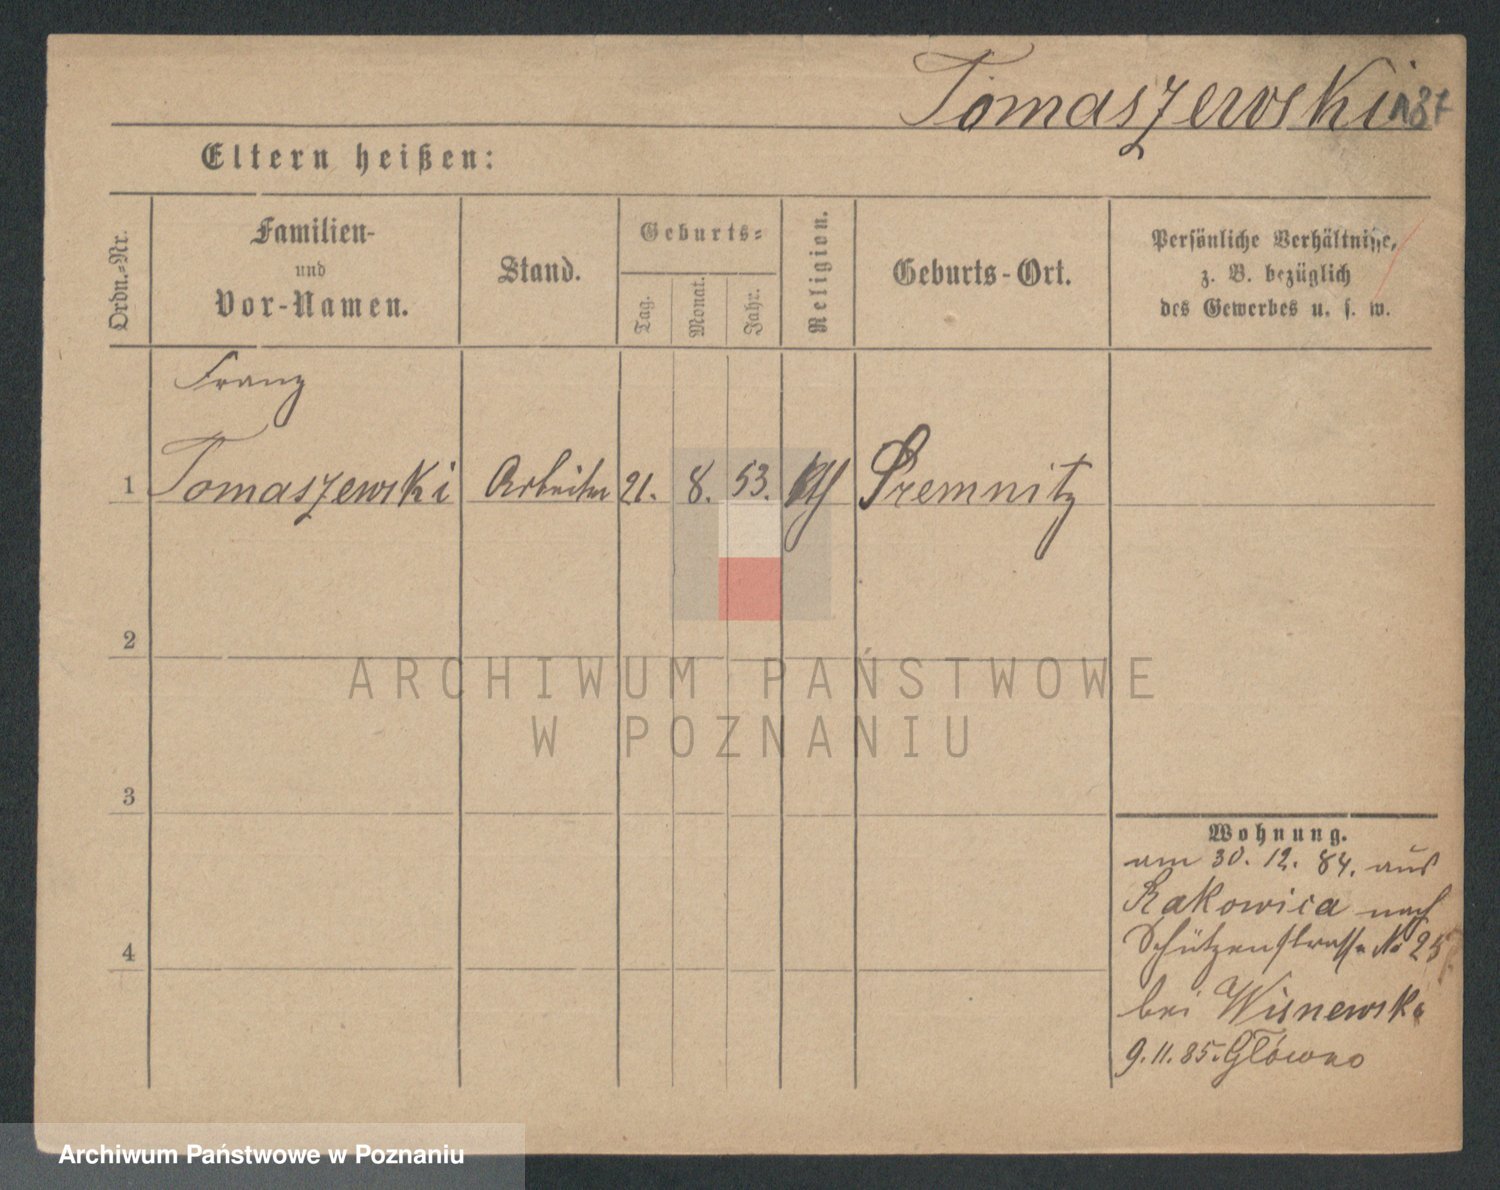 Tomaszewski 187
Eltern heißen:
Ordn.-Nr.
Familien-
und
Vor-Namen.
Stand.
Geburts-
Tag.
Monat.
Jahr.
Religion.
Geburts-Ort.
Persönliche Verhältnisse,
z. B. bezüglich
des Gewerbes u. s. w.
Franz
1 Tomaszewski Arbeiter 21. 8. 53. kth
2
ARCHIWUM PAŃSTWOWE
W POZNANIU
3
Wohnung.
am 30. 12. 84. aus
Rakowica nach
4
Schützenstrasse No 25
bei Wisnewski
9.11.85. Główno
Archiwum Państwowe w Poznaniu